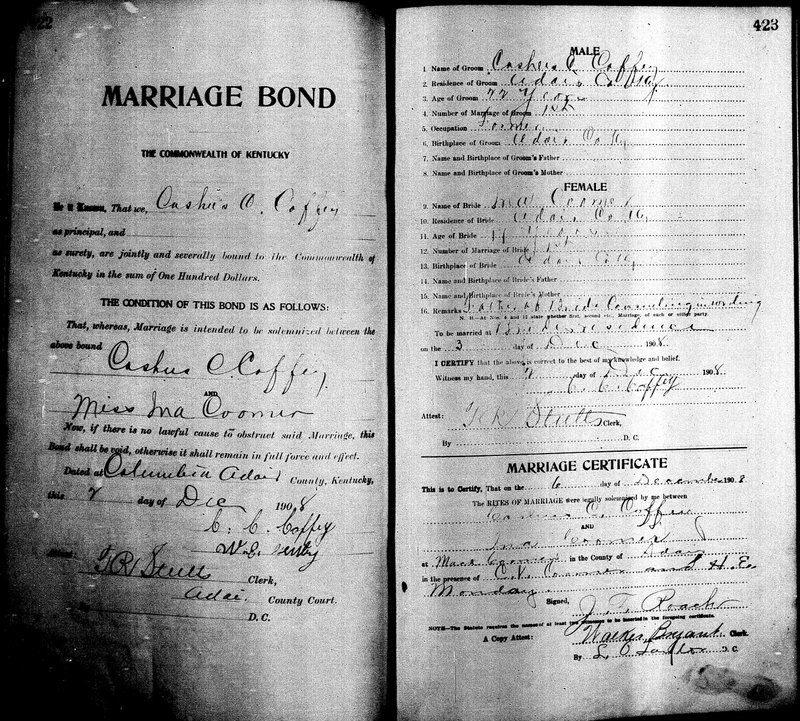 22
MARRIAGE BOND
THE COMMONWEALTH OF KENTUCKY
Be it Known, That we, Cashus C. Coffey
as principal, and
as surety, are jointly and severally bound to the Commonwealth of
Kentucky in the sum of One Hundred Dollars.
THE CONDITION OF THIS BOND IS AS FOLLOWS:
That, whereas, Marriage is intended to be solemnized between the
above bound
Cashus C Coffey
AND
Miss Ina Coomer
Now, if there is no lawful cause to obstruct said Marriage, this
Bond shall be void, otherwise it shall remain in full force and effect.
Dated at Columbia Adair County, Kentucky,
this 2 day of Dec 1908
C. C. Coffey
W.E.
Attest:
T R Stults Clerk,
Adair County Court.
By D.C.
423
MALE
1 Name of Groom Cashus C Coffey
2. Residence of Groom Adair Co Ky
3. Age of Groom 22 Years
4. Number of Marriage of Groom 1st
5. Occupation Farmer
6. Birthplace of Groom Adair Co Ky
7. Name and Birthplace of Groom's Father
8. Name and Birthplace of Groom's Mother
FEMALE
9. Name of Bride Ina Coomer
10. Residence of Bride Adair Co Ky
11. Age of Bride 17 Years
12. Number of Marriage of Bride 1st
13. Birthplace of Bride Adair Co Ky
14. Name and Birthplace of Bride's Father
15. Name and Birthplace of Bride's Mother
16. Remarks Father of Bride Consenting in writing
N. B.—In Nos. 4 and 12 state whether first, second, etc., Marriage, of each or either party.
To be married at Brides residence
on the 3 day of Dec 1908
I CERTIFY that the above is correct to the best of my knowledge and belief.
Witness my hand, this 2 day of Dec 1908
C. C. Coffey
Attest:
T R Stults Clerk,
By D. C.
MARRIAGE CERTIFICATE
This is to Certify, That on the 6 day of December 1908
The RITES OF MARRIAGE were legally solemnized by me between
Cashus C. Coffey
AND
Ina Coomer
at Coomer in the County of Adair
in the presence of Coomer and H. E.
Monday
Signed, J. T. Roach
NOTE—The Statute requires the names of at least two witnesses to be inserted in the foregoing certificate.
A Copy Attest: Walker Bryant Clerk.
By D. C.